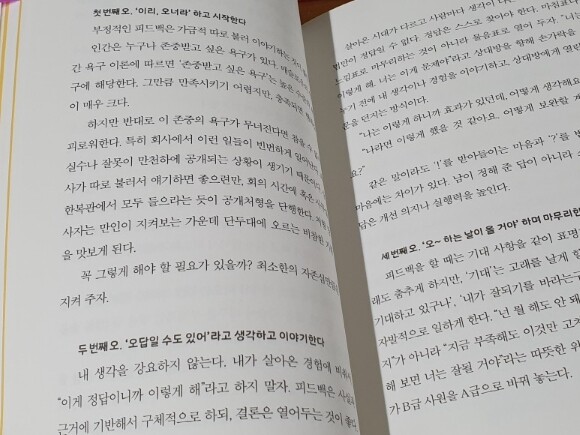 첫번째오. ‘이리, 오너라’ 하고 시작한다
부정적인 피드백은 가급적 따로 불러 이야기하는
인간은 누구나 존중받고 싶은 욕구가 있다.
간 욕구 이론에 따르면 ‘존중받고 싶은 욕구’는 높은
구에 해당한다. 그만큼 만족시키기 어렵지만,
이 매우 크다.
하지만 반대로 이 존중의 욕구가 무너진다면 참을 수
괴로워한다. 특히 회사에서 이런 일들이 빈번하게
실수나 잘못이 만천하에 공개되는 상황이 생기기
사가 따로 불러서 얘기하면 좋으련만, 회의 시간에 혹은
한복판에서 모두 들으라는 듯이 공개처형을 단행한다.
사자는 만인이 지켜보는 가운데 단두대에 오르는 비참한
을 맛보게 된다.
꼭 그렇게 해야 할 필요가 있을까? 최소한의
지켜 주자.
두번째오. ‘오답일 수도 있어’라고 생각하고 이야기한다
내 생각을 강요하지 않는다. 내가 살아온 경험에
“이게 정답이니까 이렇게 해”라고 하지 말자. 피드백은
근거에 기반해서 구체적으로 하되, 결론은 열어두는 것이
살아온 시대가 다르고 사람마다 생각이
정답일 수 없다. 정답은 스스로 찾아야 한다.
마무리하는 것이 아니라 물음표로 열어 두자.
이렇게 해. 너는 이게 문제야”라고 상대방을 향해
전에 내 생각이나 경험을 이야기하고, 상대방에게
을 던지는 방식이다.
“나는 이렇게 하니까 효과가 있던데, 어떻게 생각해요
“나라면 이렇게 했을 것 같아요. 어떻게 보완할
요?”
같은 말이라도 ‘!’를 받아들이는 마음과 ‘?’를
마음에는 차이가 있다. 남이 정해 준 답이 아니라
답은 개선 의지나 실행력을 높인다.
세번째오. ‘오~ 하는 날이 올 거야’ 하며 마무리한
피드백을 할 때는 기대 사항을 같이 표명
래도 춤추게 하지만, ‘기대’는 고래를 날게 할
기대하고 있구나’, ‘내가 잘되기를 바라는
자발적으로 일하게 한다. “넌 뭘 해도 안
지”가 아니라 “지금 부족해도 이것만 고치
해 보면 너는 잘될 거야”라는 따뜻한 위
가 B급 사원을 A급으로 바꿔 놓는다.